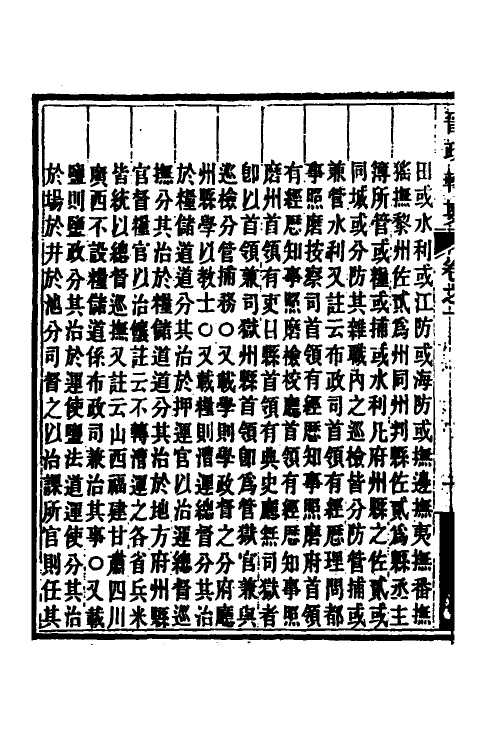 田或水利或江防或海防或撫邊撫夷撫番撫
猺撫黎州佐貳爲州同州判縣佐貳爲縣丞主
簿所管或糧或捕或水利凡府州縣之佐貳或
同城或分防其雜職內之巡檢皆分防管捕或
兼管水利又註云布政司首領有經歷理問都
事照磨按察司首領有經歷知事照磨府首領
有經歷知事照磨檢校廳首領有經歷知事照
磨州首領有吏目縣首領有典史廳無司獄者
卽以首領兼司獄州縣首領卽爲管獄官兼與
巡檢分管捕務○又載學則學政督之分府廳
州縣學以教士○又載糧則漕運總督分其治
於糧儲道道分其治於押運官以治運總督巡
撫分其治於糧儲道道分其治於地方府州縣
官督糧官以治儲註云不轉漕運之各省兵米
皆統以總督巡撫又註云山西福建甘肅四川
廣西不設糧儲道係布政司兼治其事○又載
鹽則鹽政分其治於運使鹽法道運使分其治
於場於井於池分司督之以治課所官則任其
晉政輯要
卷之一